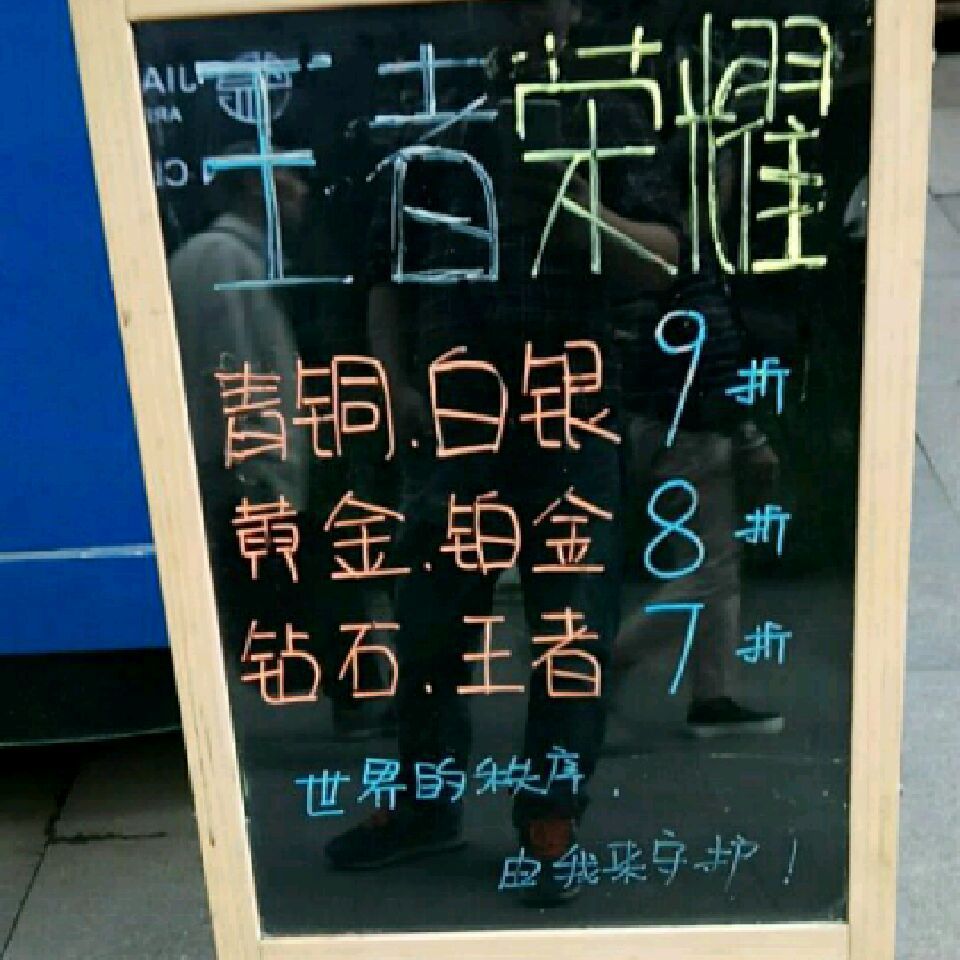 王者荣耀
青铜.白银 9折
黄金.铂金 8折
钻石.王者 7折
世界的秩序.
由我来守护!